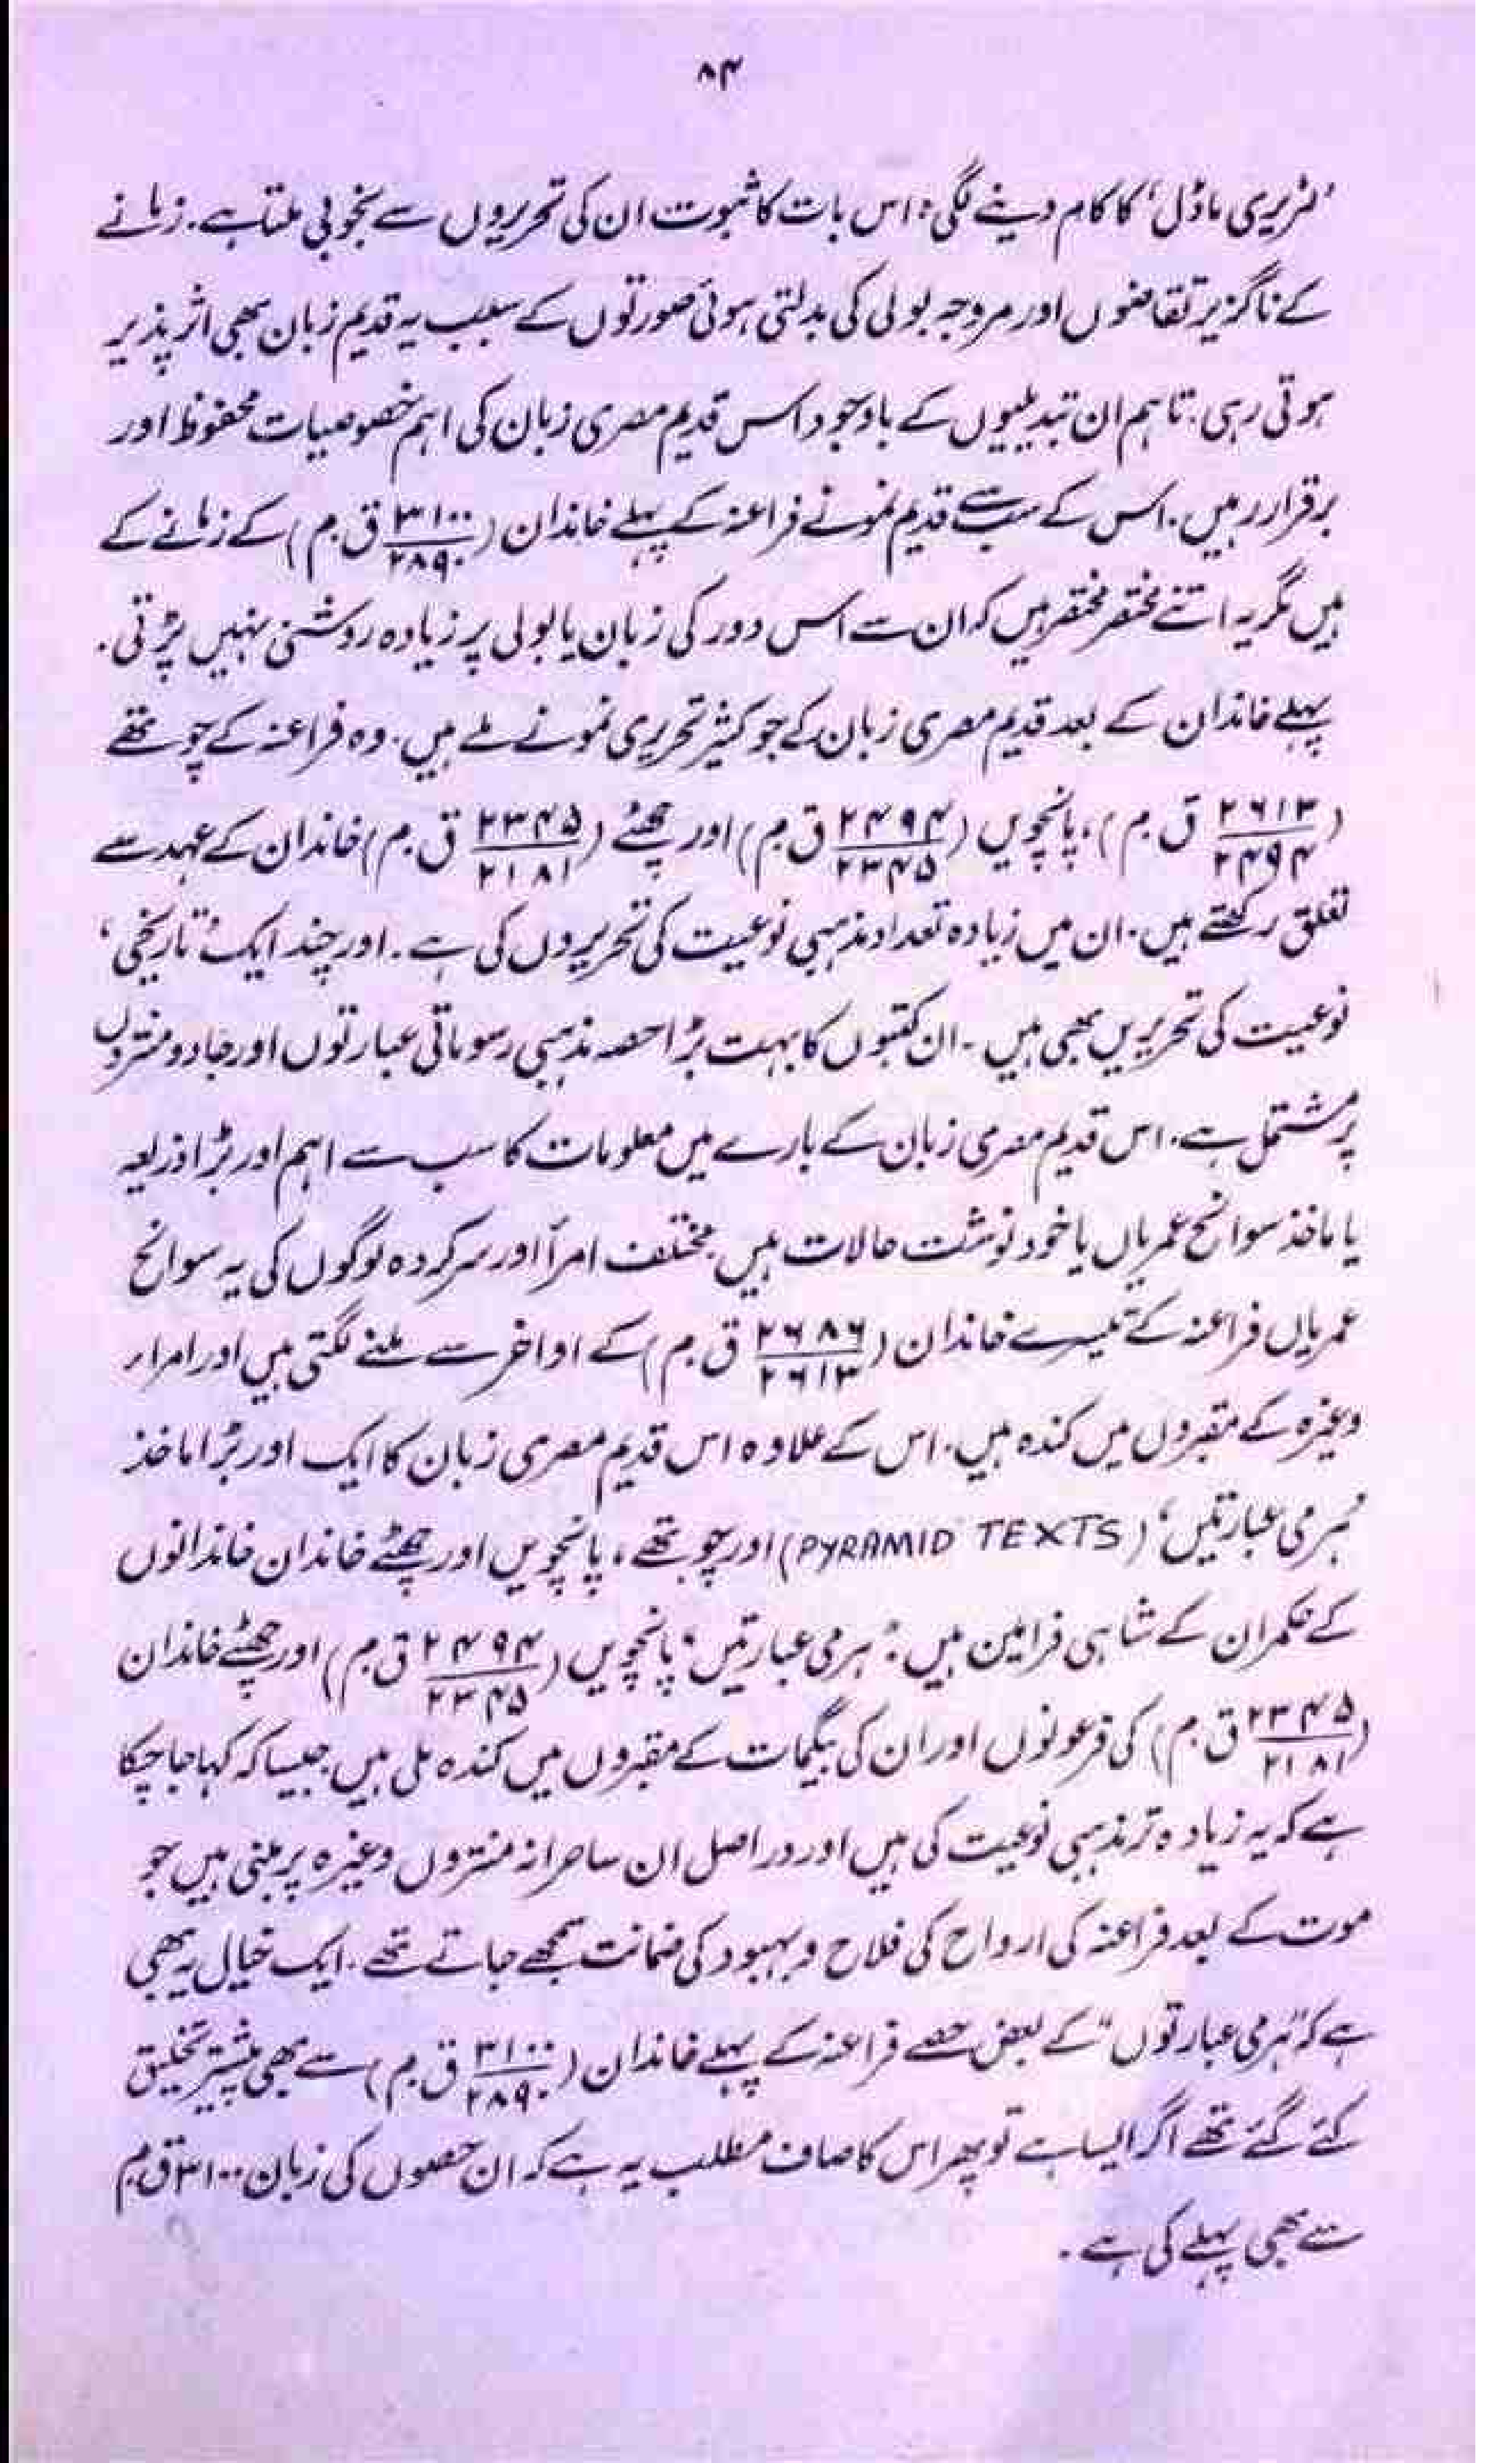 ۸۴
'لٹریری ماڈل' کا کام دینے لگی؛ اس بات کا ثبوت ان کی تحریروں سے بخوبی ملتا ہے۔ زمانے
کے ناگزیر تقاضوں اور مروجہ بولی کی بدلتی ہوئی صورتوں کے سبب یہ قدیم زبان بھی اثر پذیر
ہوتی رہی۔ تاہم ان تبدیلیوں کے باوجود اس قدیم مصری زبان کی اہم خصوصیات محفوظ اور
برقرار رہیں۔ اس کے سب سے قدیم نمونے فراعنہ کے پہلے خاندان (۳۱۰۰/۲۸۹۰ ق.م) کے زمانے کے
ہیں مگر یہ اتنے مختصر مختصر ہیں کہ ان سے اس دور کی زبان یا بولی پر زیادہ روشنی نہیں پڑتی۔
پہلے خاندان کے بعد قدیم مصری زبان کے جو کثیر تحریری نمونے ملے ہیں۔ وہ فراعنہ کے چوتھے
(۲۶۱۳/۲۴۹۴ ق.م)، پانچویں (۲۴۹۴/۲۳۴۵ ق.م) اور چھٹے (۲۳۴۵/۲۱۸۱ ق.م) خاندان کے عہد سے
تعلق رکھتے ہیں۔ ان میں زیادہ تعداد مذہبی نوعیت کی تحریروں کی ہے۔ اور چند ایک 'تاریخی'
نوعیت کی تحریریں بھی ہیں۔ ان کتبوں کا بہت بڑا حصہ مذہبی رسوماتی عبارتوں اور جادو منتروں
پر مشتمل ہے۔ اس قدیم مصری زبان کے بارے میں معلومات کا سب سے اہم اور بڑا ذریعہ
یا ماخذ سوانح عمریاں یا خود نوشت حالات ہیں۔ مختلف امرأ اور سرکردہ لوگوں کی یہ سوانح
عمریاں فراعنہ کے تیسرے خاندان (۲۶۸۶/۲۶۱۳ ق.م) کے اواخر سے ملنے لگتی ہیں اور امراء
وغیرہ کے مقبروں میں کندہ ہیں۔ اس کے علاوہ اس قدیم مصری زبان کا ایک اور بڑا ماخذ
'ہرمی عبارتیں' (PYRAMID TEXTS) اور چوتھے، پانچویں اور چھٹے خاندان خاندانوں
کے حکمران کے شاہی فرامین ہیں: 'ہرمی عبارتیں' پانچویں (۲۴۹۴/۲۳۴۵ ق.م) اور چھٹے خاندان
(۲۳۴۵/۲۱۸۱ ق.م) کی فرعونوں اور ان کی بیگمات کے مقبروں میں کندہ ملی ہیں۔ جیسا کہ کہا جا چکا
ہے کہ یہ زیادہ تر مذہبی نوعیت کی ہیں اور دراصل ان ساحرانہ منتروں وغیرہ پر مبنی ہیں جو
موت کے بعد فراعنہ کی ارواح کی فلاح و بہبود کی ضمانت سمجھے جاتے تھے۔ ایک خیال یہ بھی
ہے کہ "ہرمی عبارتوں" کے بعض حصے فراعنہ کے پہلے خاندان (۳۱۰۰/۲۸۹۰ ق.م) سے بھی پیشتر تخلیق
کئے گئے تھے اگر ایسا ہے تو پھر اس کا صاف مطلب یہ ہے کہ ان حصوں کی زبان ۳۱۰۰ ق م
سے بھی پہلے کی ہے۔